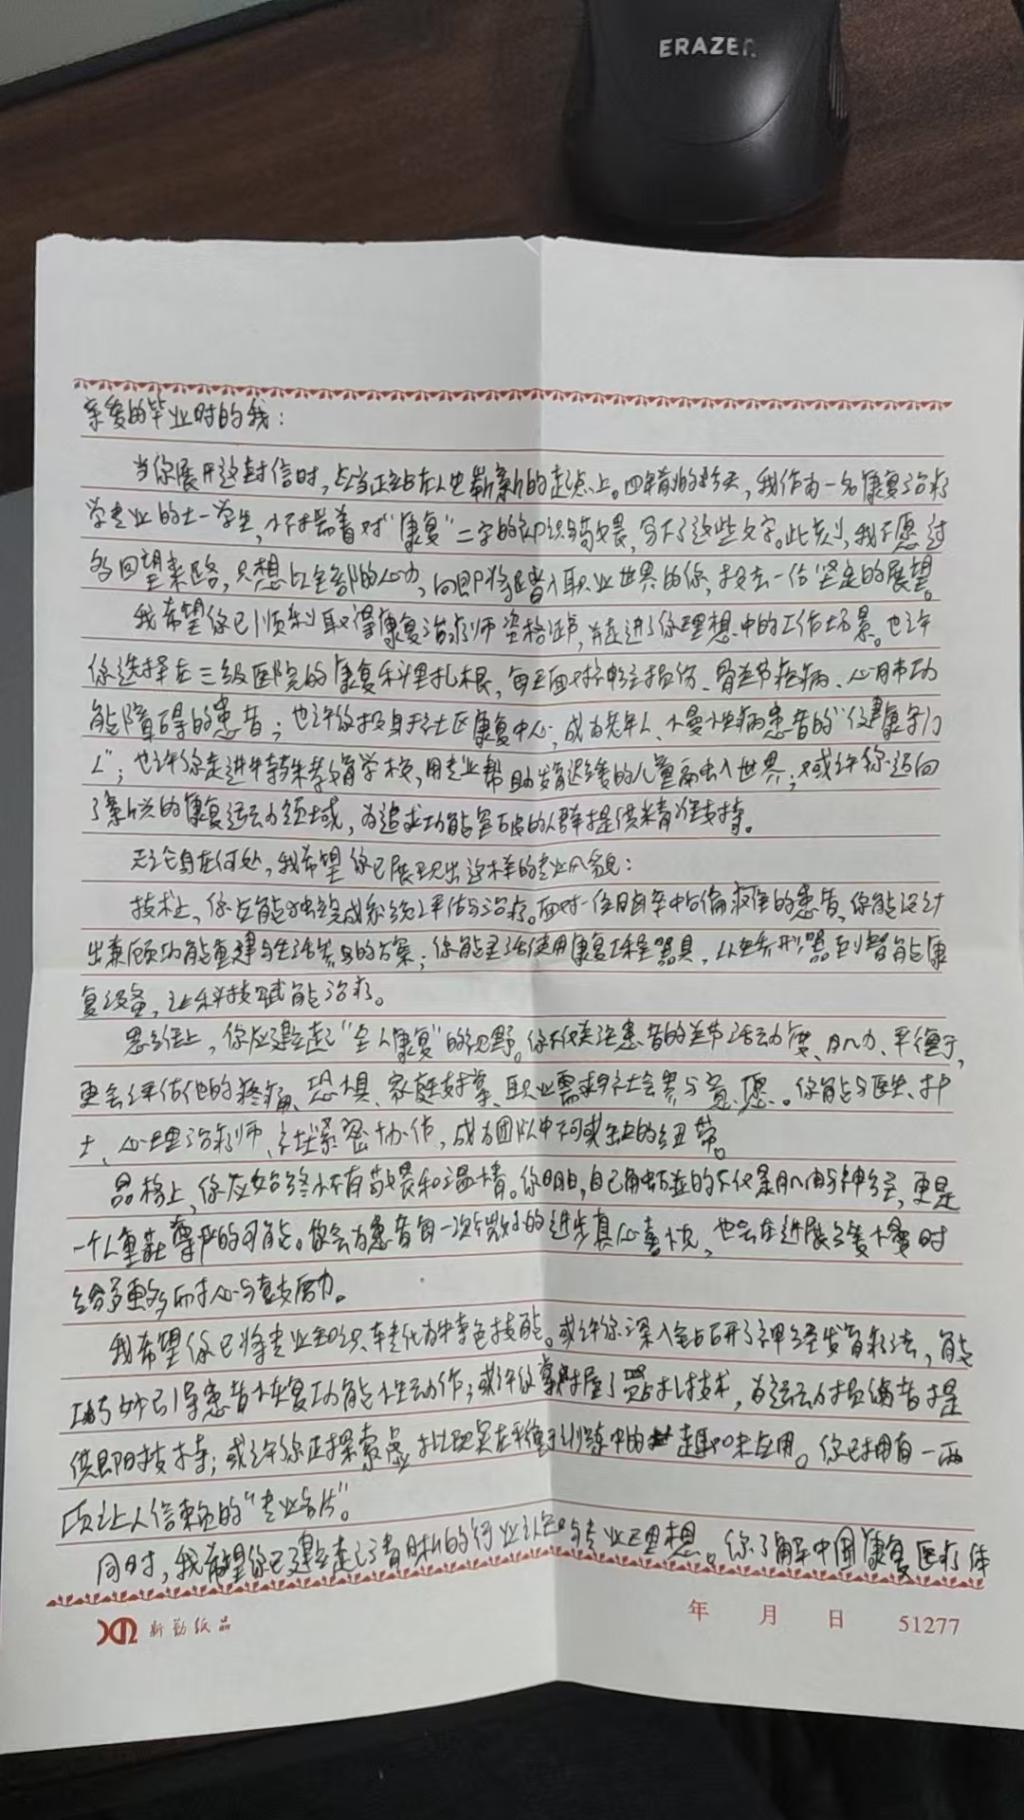 ERAZER
亲爱的毕业时的我：
当你展开这封信时，应当正站在人生崭新的起点上。四年前的昨天，我作为一名康复治疗
学专业的大一学生，怀揣着对“康复”二字的初识与敬畏，写下了这些文字。此刻，我不愿过
多回望来路，只想以全部的心力，向即将踏入职业世界的你，投去一份坚定的展望。
我希望你已顺利取得康复治疗师资格证书，并走进了你理想中的工作场景。也许
你选择在三级医院的康复科里扎根，每天面对神经损伤、骨关节疾病、心肺功
能障碍的患者；也许你投身于社区康复中心，成为老年人、慢性病患者的“健康守门
人”；也许你走进特殊教育学校，用专业帮助发育迟缓的儿童融入世界；又或许你迈向
了新兴的康复运动领域，为追求功能突破的人群提供精准支持。
无论身在何处，我希望你已展现出这样的专业风貌：
技术上，你应能独立完成系统评估与治疗。面对一位脑卒中后偏瘫的患者，你能设计
出兼顾功能重建与生活参与的方案；你能灵活使用康复工程器具，从矫形器到智能康
复设备，让科技赋能治疗。
思维上，你应建立起“全人康复”的视野。你不仅关注患者的关节活动度、肌力、平衡，
更会评估他的疼痛、恐惧、家庭支撑、职业需求和社会参与意愿。你能与医生、护
士、心理治疗师、社工紧密协作，成为团队中不可或缺的纽带。
品格上，你应始终怀有敬畏和温情。你明白，自己触碰的不仅是肌肉与神经，更是
一个人重获尊严的可能。你会为患者每一次微小的进步真心喜悦，也会在进展缓慢时
给予更多耐心与鼓励。
我希望你已将专业知识转化为特色技能。或许你深入钻研了神经发育疗法，能
巧妙引导患者恢复功能性动作；或许你掌握了贴扎技术，为运动损伤者提
供即时支持；或许你正探索虚拟现实在平衡训练中的趣味应用。你已拥有一两
项让人信赖的“专业名片”。
同时，我希望你已建立起了清晰的行业认知与专业理想。你了解中国康复医疗体
新勤纸品
年 月 日 51277